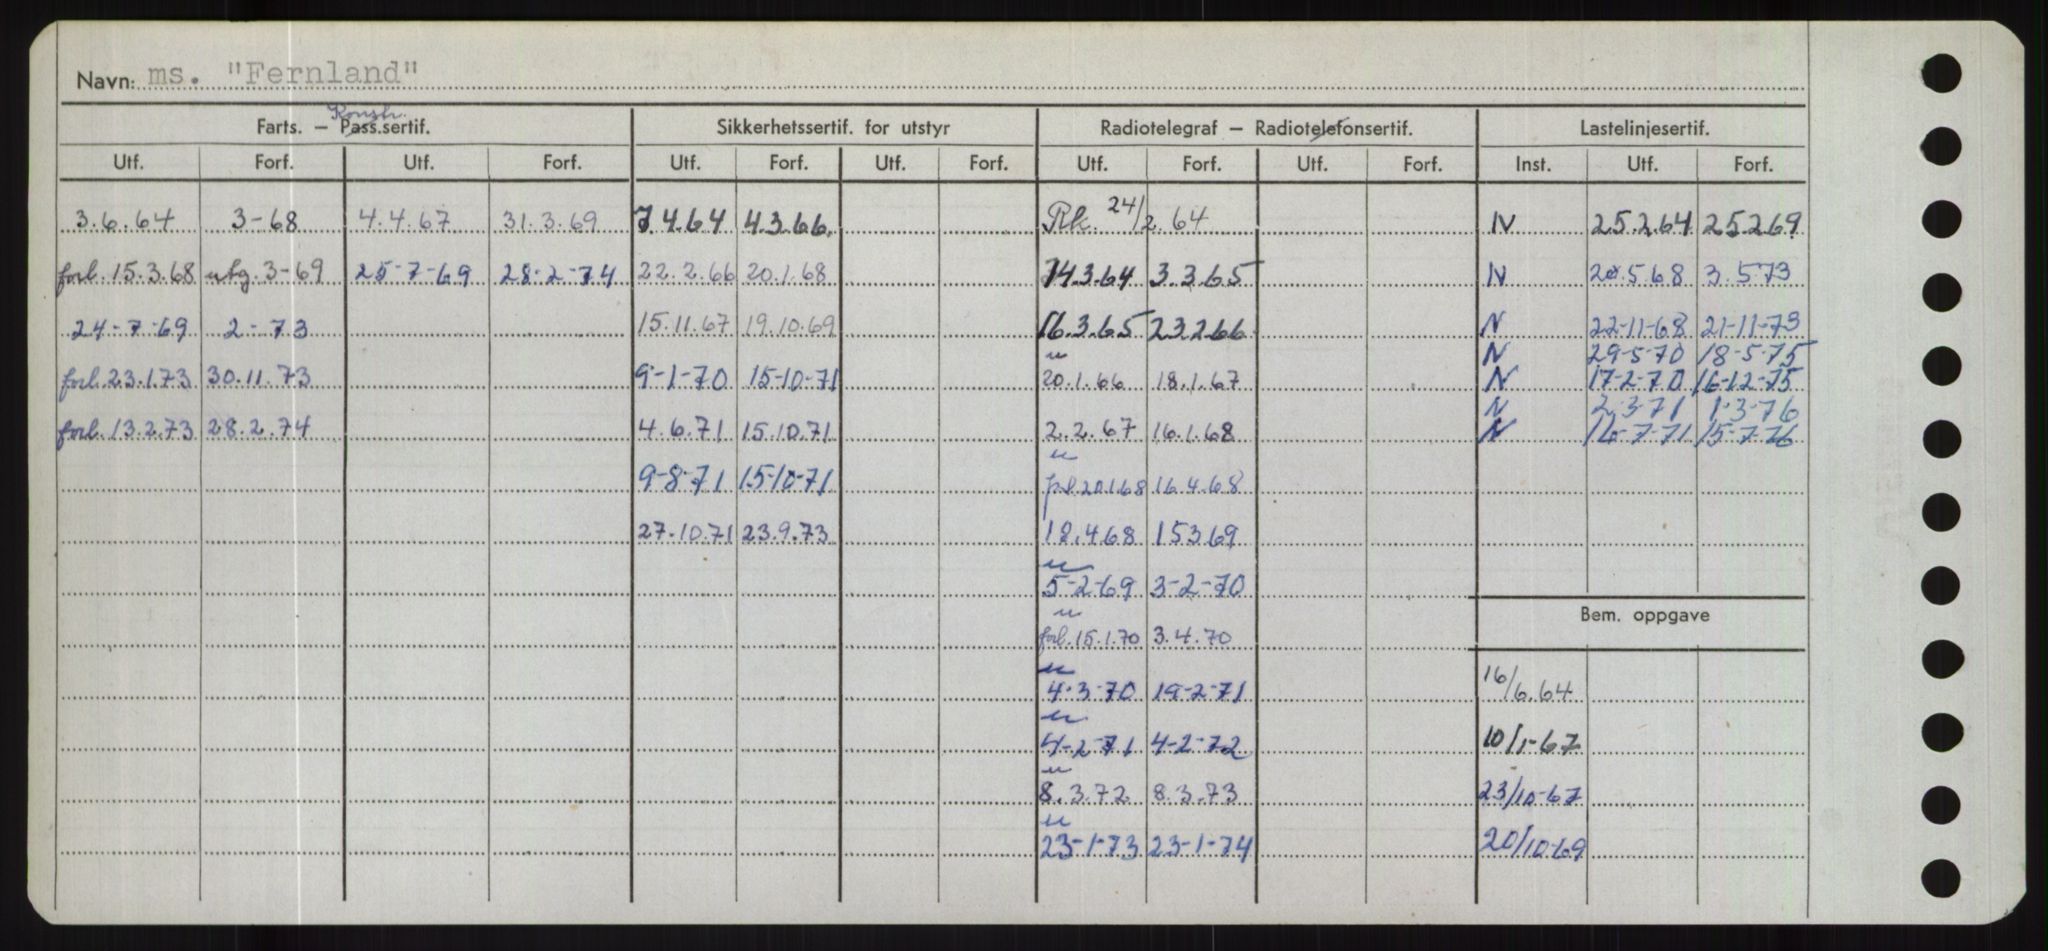 Navn: ms. "Fernland"
Konstr.
Farts. – Pass.sertif. Sikkerhetssertif. for utstyr Radiotelegraf – Radiotelefonsertif. Lastelinjesertif.
Utf. Forf. Utf. Forf. Utf. Forf. Utf. Forf. Utf. Forf. Utf. Forf. Inst. Utf. Forf.
3.6.64 3-68 4.4.67 31.3.69 7.4.64 4.3.66. Rk. 24/2.64 N 25.2.64 25.2.69.
forl. 15.3.68 utg. 3-69 25-7-69 28-2-74 22.2.66 20.1.68 14.3.64 3.3.65 N 20.5.68 3.5.73
24-7-69 2-73 15.11.67 19.10.69 16.3.65 23.2.66 N 22-11-68 21-11-73
N 29-5-70 18-5-75
forl. 23.1.73 30.11.73 9-1-70 15-10-71 " 20.1.66 18.1.67 N 17-2-70 16-12-75
N 2-3-71 1-3-76
forl. 13.2.73 28.2.74 4.6.71 15.10.71 2.2.67 16.1.68 N 16-7-71 15-7-76
9-8-71 15-10-71 " forl. 20.1.68 16.4.68
27.10.71 23.9.73 18.4.68 15.3.69
" 5-2-69 3-2-70
Bem. oppgave
" forl. 15.1.70 3.4.70
" 4-3-70 19-2-71 16/6.64
" 4-2-71 4-2-72 10/1-67
" 8.3.72 8.3.73 23/10-67
" 23-1-73 23-1-74 20/10-69